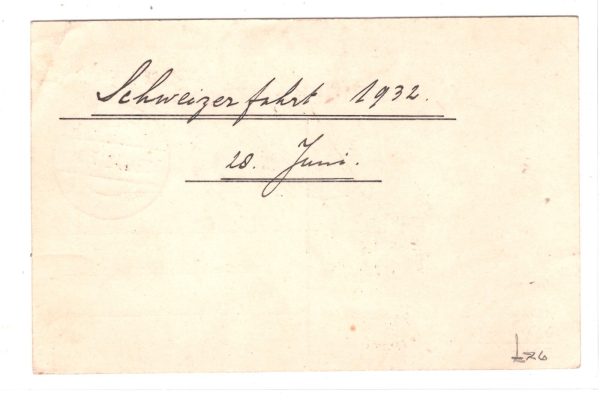 Schweizerfahrt 1932.
28. Juni.